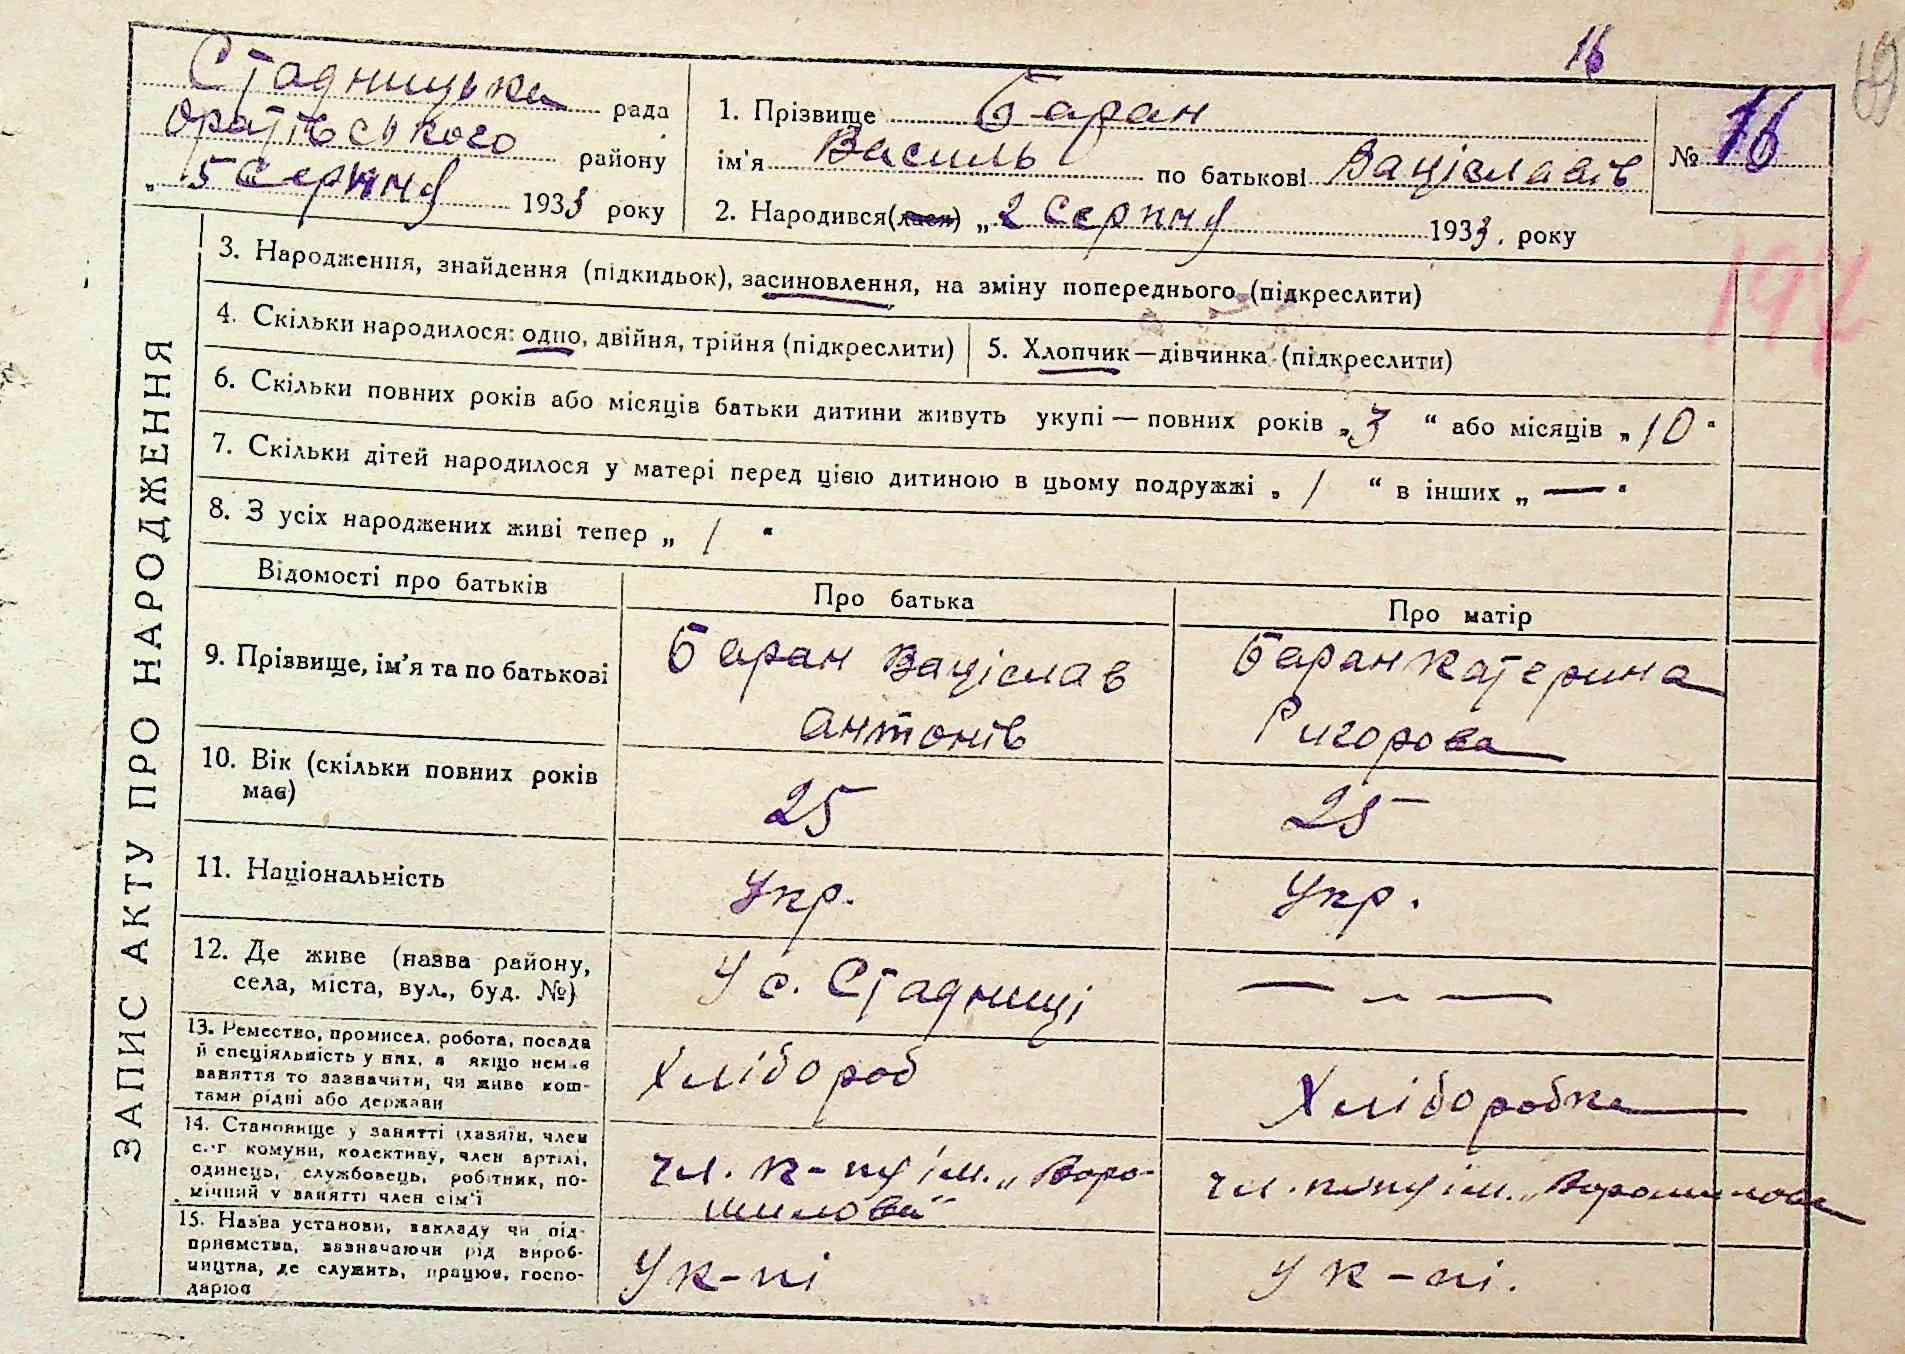 16
69
Стадницька рада
Оратівського району
„ 5 серпня 1933 року
1. Прізвище Баран
ім'я Василь по батькові Вацієлавів
2. Народився(лася) „ 2 серпня 1933. року
№ 16
194
ЗАПИС АКТУ ПРО НАРОДЖЕННЯ
3. Народження, знайдення (підкидьок), засиновлення, на зміну попереднього (підкреслити)
4. Скільки народилося: одно, двійня, трійня (підкреслити)
5. Хлопчик—дівчинка (підкреслити)
6. Скільки повних років або місяців батьки дитини живуть укупі — повних років „ 3 “ або місяців „ 10 “
7. Скільки дітей народилося у матері перед цією дитиною в цьому подружжі „ 1 “ в інших „ — “
8. З усіх народжених живі тепер „ 1 “
Відомості про батьків
Про батька
Про матір
9. Прізвище, ім'я та по батькові
Баран Вацієлав
Антонів
Баран Катерина
Ригорова
10. Вік (скільки повних років
має)
25
25
11. Національність
Укр.
Укр.
12. Де живе (назва району,
села, міста, вул., буд. №)
У с. Стадниці
— „ —
13. Ремество, промисел, робота, посада
й спеціяльність у них, а якщо немає
заняття то зазначити, чи живе кош-
тами рідні або держави
Хлібороб
Хліборобка
14. Становище у занятті (хазяїн, член
с.-г комуни, колективу, член артілі,
одинець, службовець, робітник, по-
мічний у занятті член сім'ї
чл. к-пу ім. „Воро-
шилова“
чл. к-пу ім. „Ворошилова
15. Назва установи, закладу чи під-
приємства, зазначаючи рід вироб-
ництва, де служить, працює, госпо-
дарює
У к-пі
У к-пі.